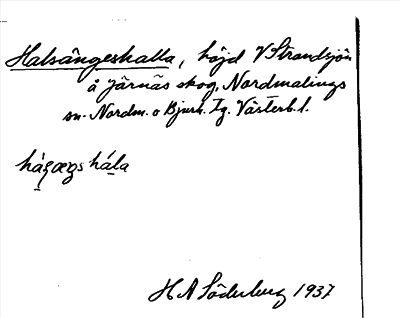 Halsängeshalla, höjd V Strandsjön
å Järnäs skog, Nordmalings
sn. Nordm. o Bjurh. Tg. Västerb. l.
hála
H A Söderberg 1937